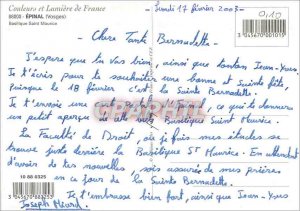 Couleurs et Lumière de France
88000 - ÉPINAL (Vosges)
Basilique Saint Maurice
Lundi 17 février 2003
Chère Tante Bernadette
J'espère que tu vas bien, ainsi que tonton Jean-Yves.
Je t'écris pour te souhaiter une bonne et Sainte fête,
puisque le 18 février c'est la Sainte Bernadette.
Je t'envoie une ce qui te donnera
un petit aperçu de la Basilique Saint Maurice.
La Faculté de Droit, où je fais mes études se
trouve juste derrière la Basilique St Maurice. En attendant
d'avoir de tes nouvelles sois assurée de mes prières
en ce jour de la Sainte Bernadette.
Je t'embrasse bien fort, ainsi que Jean-Yves
Joseph
10 88 0325
3 045670 001015